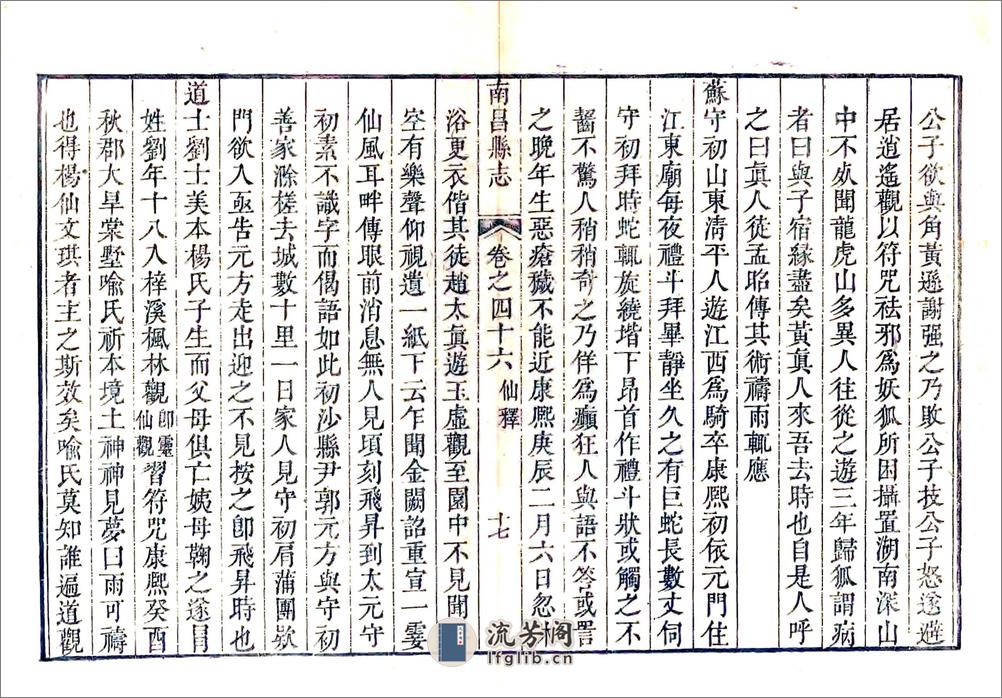 公子欲與角黃遜謝强之乃敗公子技公子怒遂避
居逍遙觀以符咒祛邪爲妖狐所困攝置湖南深山
中不死聞龍虎山多異人往從之遊三年歸狐謂病
者曰與子宿緣盡矣黃眞人來吾去時也自是人呼
之曰眞人徒孟昭傳其術禱雨輒應
蘇守初山東淸平人遊江西爲騎卒康熙初依元門住
江東廟每夜禮斗拜畢靜坐久之有巨蛇長數丈伺
守初拜時蛇輒旋繞堦下昂首作禮斗狀或觸之不
齧不驚人稍稍奇之乃佯爲癲狂人與語不答或詈
之晚年生惡瘡穢不能近康熙庚辰二月六日忽
南昌縣志 卷之四十六 仙釋 十七
浴更衣偕其徒趙太眞遊玉虛觀至園中不見聞
空有樂聲仰視遺一紙下云乍聞金闕詔重宣一霎
仙風耳畔傳眼前消息無人見頃刻飛昇到太元守
初素不識字而偈語如此初沙縣尹郭元方與守初
善家滁槎去城數十里一日家人見守初肩蒲團欵
門欲入亟告元方走出迎之不見按之卽飛昇時也
道士劉士美本楊氏子生而父母俱亡姨母鞠之遂冒
姓劉年十八入梓溪楓林觀卽靈仙觀習符咒康熙癸酉
秋郡大旱棠墅喻氏祈本境土神神見夢曰雨可禱
也得楊仙文琪者主之斯效矣喻氏莫知誰遍道觀
流芳阁
lfglib.cn